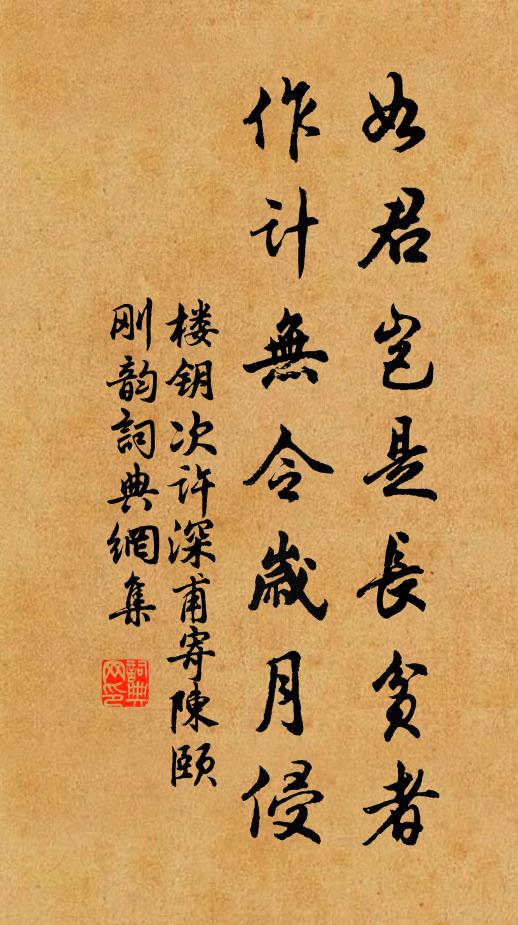 如君岂是長貧者
作計無令歲月侵
楼钥次许深甫寄陳颐
刚韵詞典網集
詞典
网印